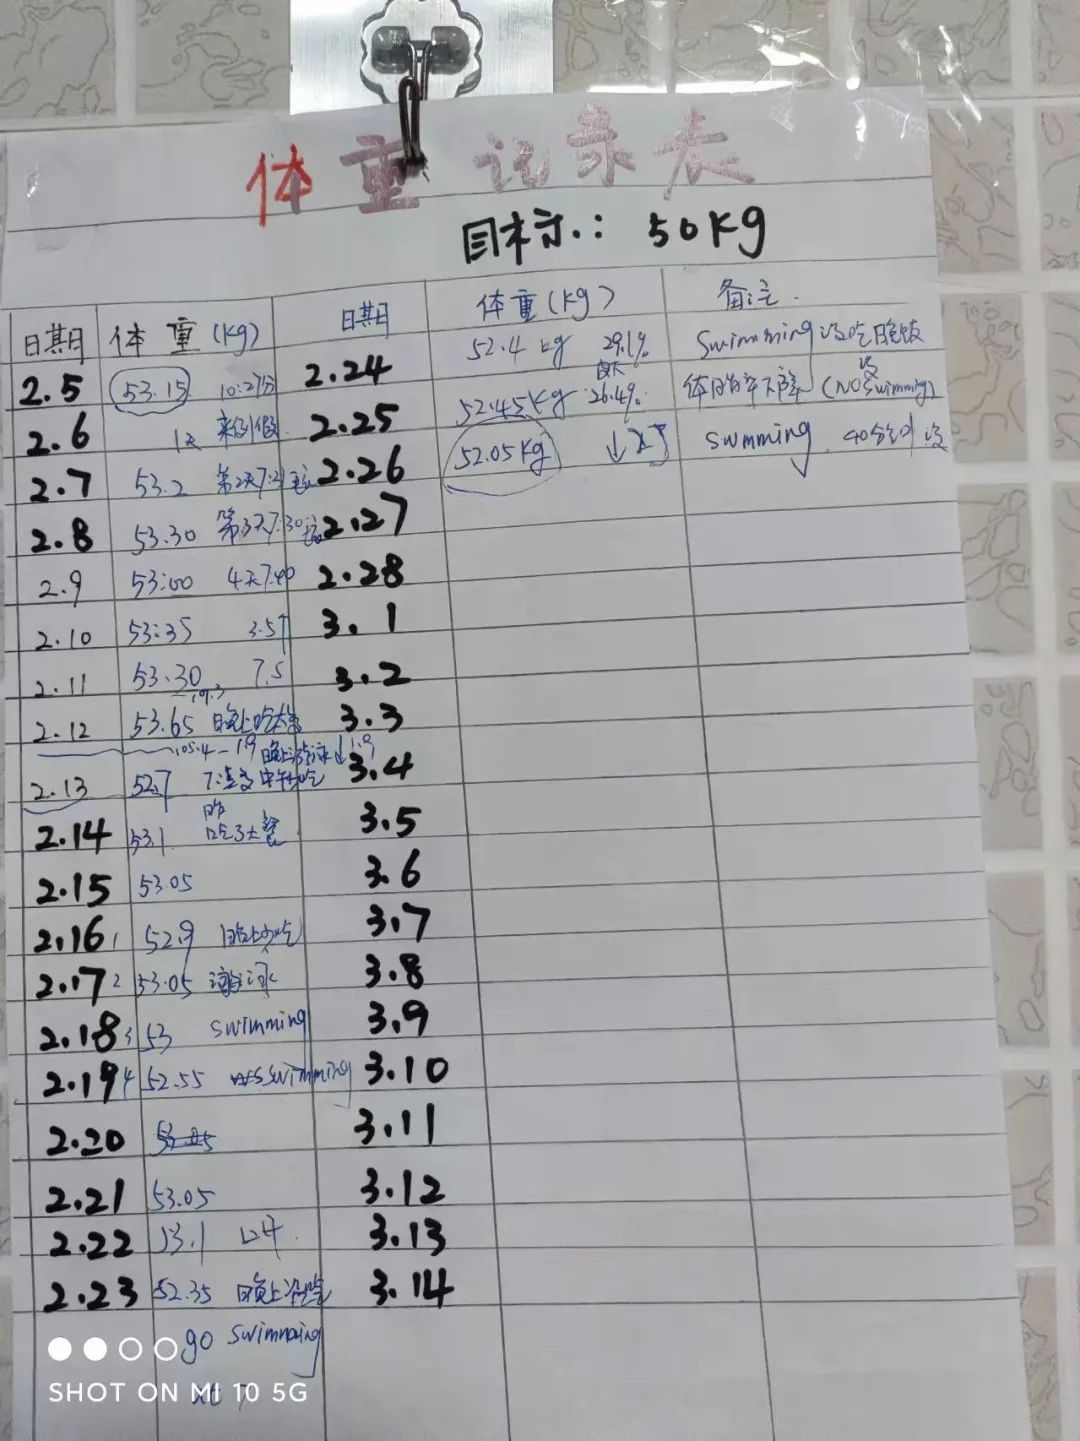 体重记录表
目标：50Kg
日期 体重(Kg) 日期 体重(Kg) 备注.
2.5 53.15 10:27分 2.24 52.4 kg 29.1% Swimming 没吃晚饭
2.6 1天 来例假 2.25 52.45Kg 26.4% 体脂率下降 (NO swimming)
2.7 53.2 第2天7:2 2.26 52.05Kg ↓ swmming 40分钟 没
2.8 53.30 第3天7:30 2.27
2.9 53:00 4天7.40 2.28
2.10 53:35 3.1
2.11 53.30 7.5 3.2
2.12 53.65 晚上吃大餐 3.3
105.4-1.9 晚上游泳↓1.9
2.13 52.7 3.4
2.14 53.1 昨吃了大餐 3.5
2.15 53.05 3.6
2.16 1 52.9 晚上少吃 3.7
2.17 2 53.05 游泳 3.8
2.18 3 53 swimming 3.9
2.19 4 52.55 swimming 3.10
2.20 3.11
2.21 53.05 3.12
2.22 53.1 3.13
2.23 52.35 晚上没吃 3.14
go swimming
SHOT ON MI 10 5G